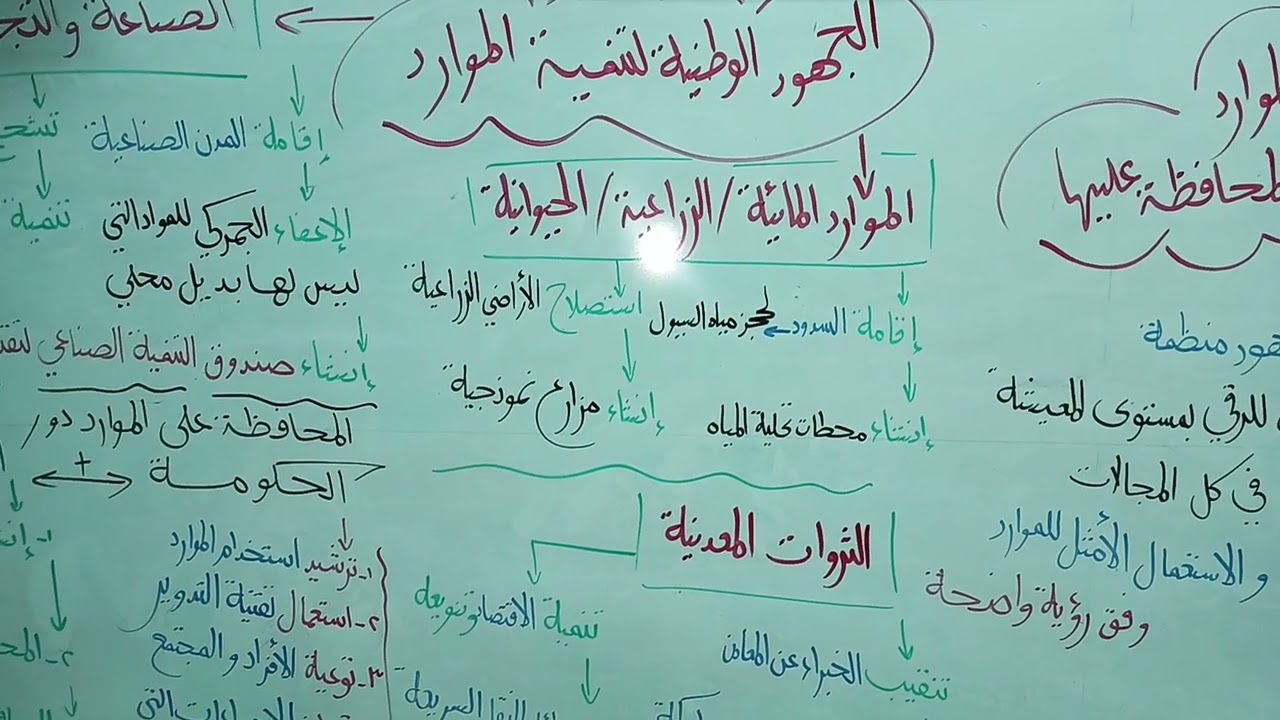 موارد
المحافظة عليها
منظمة
للرقي بمستوى المعيشة
في كل المجالات
و الاستعمال الأمثل للموارد
وفق رؤية واضحة
الجهود الوطنية لتنمية الموارد
الموارد المائية / الزراعية / الحيوانية
إقامة السدود لحجز مياه السيول
إنشاء محطات تحلية المياه
استصلاح الأراضي الزراعية
إنشاء مزارع نموذجية
الثروات المعدنية
تنقيب الخبراء عن المعادن
تنمية الاقتصاد وتنويعه
السريعة
الصناعة و
إقامة المدن الصناعية
الإعفاء الجمركي للمواد التي
ليس لها بديل محلي
إنشاء صندوق التنمية الصناعي
تنمية
المحافظة على الموارد دور /
الحكومة +
١- ترشيد استخدام الموارد
٢- استعمال تقنية التدوير
٣- توعية الأفراد و المجتمع
التي
١-
٢-